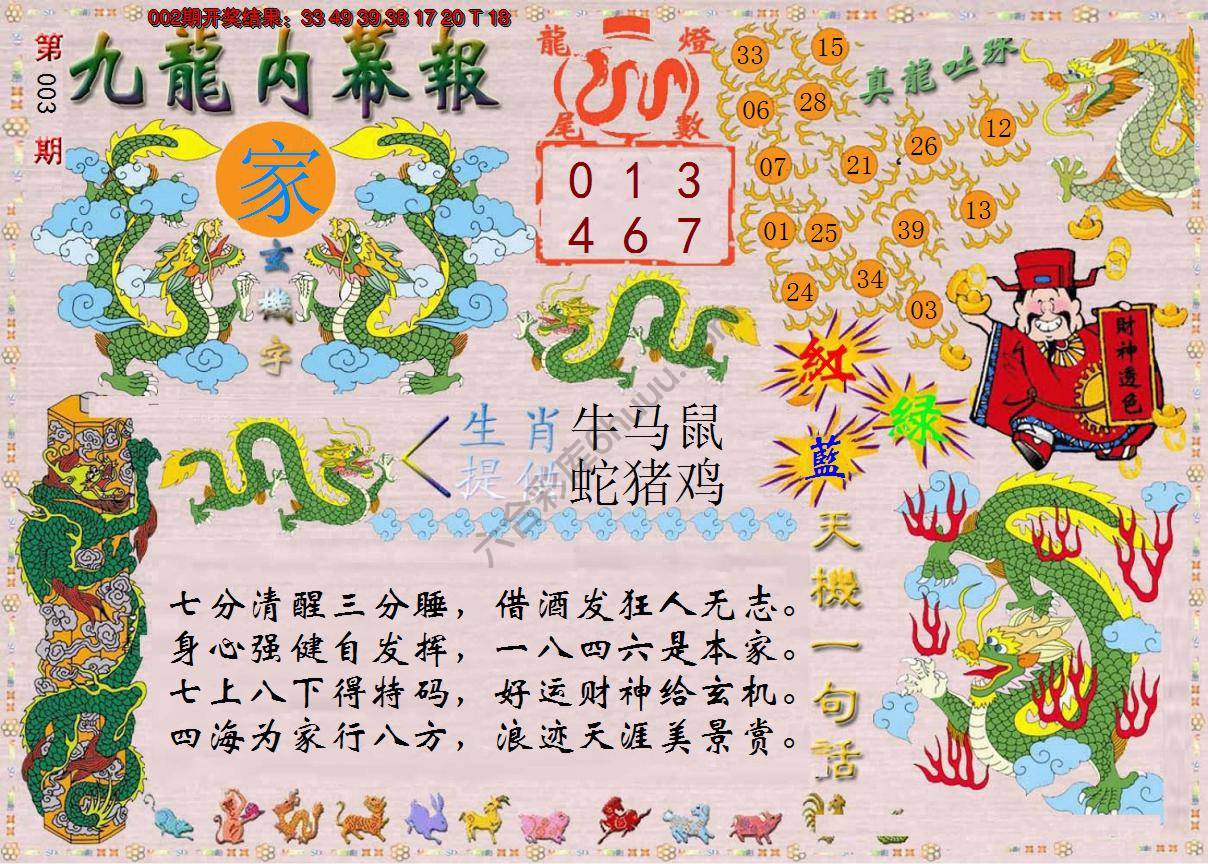 002期开奖结果：33 49 39 38 17 20 T 18
第003期
九龍内幕報
家
玄機字
龍燈
尾數
0 1 3
4 6 7
真龍吐珠
33 15
06 28
07 21 26 12
01 25 39 13
24 34 03
紅
綠
藍
財神透色
生肖 牛马鼠
提供 蛇猪鸡
六合彩库
七分清醒三分睡，借酒发狂人无志。
身心强健自发挥，一八四六是本家。
七上八下得特码，好运财神给玄机。
四海为家行八方，浪迹天涯美景赏。
天機一句話